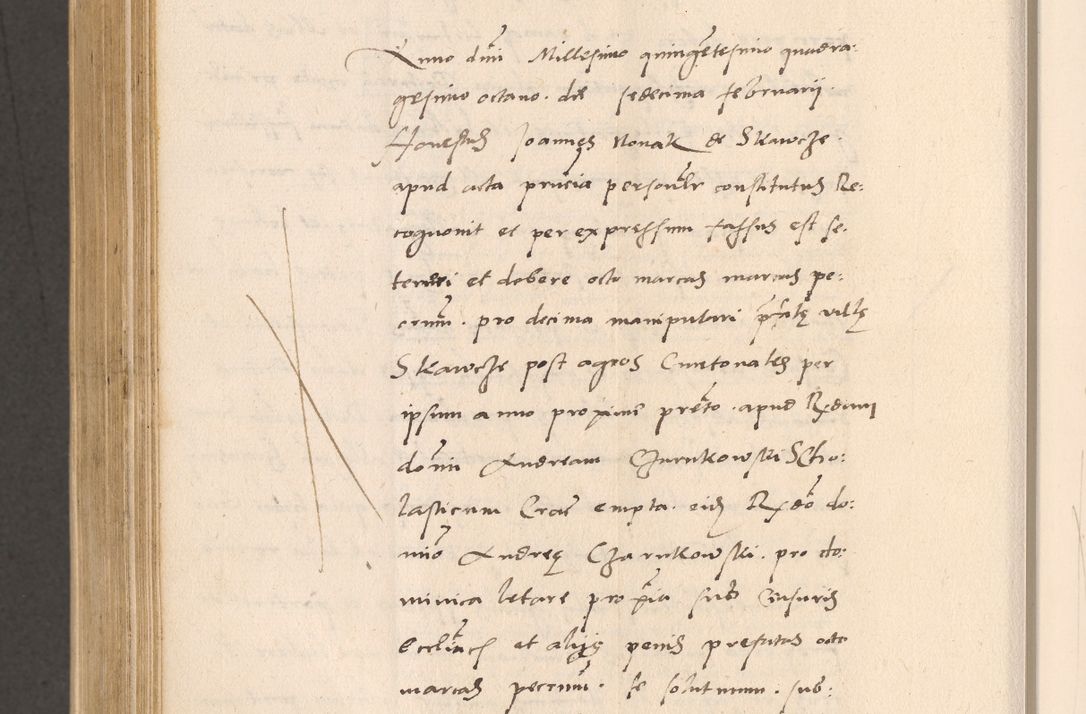 Anno dni Millesimo quingetesimo quadra:
gesimo octauo. die sedecima februarii
Honestus Joannes Nowak de Skawcze.
apud acta pnucia personlr constitutus Re:
cognouit et per expressum fassus est se.
teneri et debere octo marcas marcas pe:
crum. pro decima manipulari pfate ville
Skawcze post agros Cmetonales per
ipsum anno proximo preto. apud Rdum
domi Andream Czarnkowski Scho:
lasticum Crac empta. eid Rdo do:
mio Andree Czarnkowski. pro do:
minica letare proxia sub Censuris
Ecclicis et aliis penis prefatas octo
marcas pecunu. se soluturum. sub: